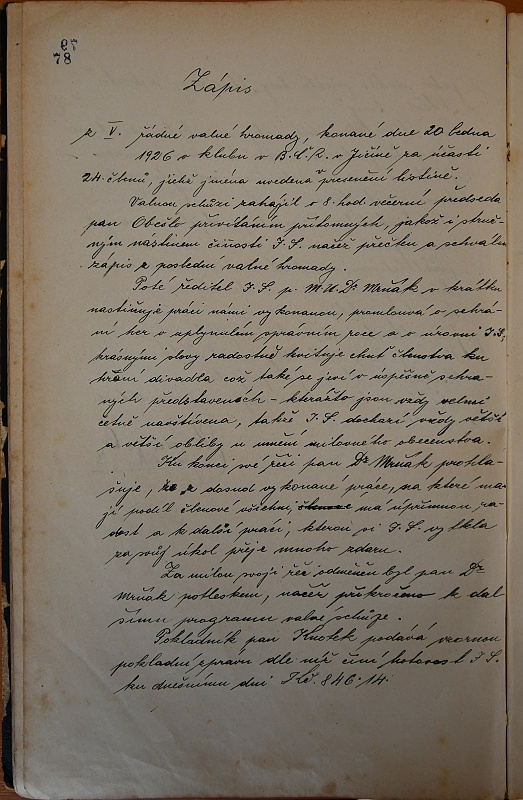 97
78
Zápis
z V. řádné valné hromady, konané dne 20 ledna
1926 v klubu v B.Č.R. v Jičíně za účasti
24 členů, jichž jména uvedena v presenční listině.
Valnou schůzi zahájil o 8. hod. večerní předseda
pan přivítáním přítomných, jakož i struč-
ným nastínem činnosti J.S. načež přečten a schválen
zápis z poslední valné hromady.
Poté ředitel J.S. p. M.U.Dr Mrňák v krátku
nastiňuje práci námi vykonanou, promlouvá o sehrá-
ní her v uplynulém správním roce a o úrovni J.S.,
krásnými slovy radostně kvituje chuť členstva ku
hraní divadla což také se jeví v úspěšně sehra-
ných představeních - kterážto jsou vždy velmi
četně navštívena, takže J.S. dochází vždy větší
a větší obliby u umění milovného obecenstva.
Ku konci své řeči pan Dr Mrňák prohla-
šuje, že z dosud vykonané práce, na které ma-
jí podíl členové všichni, má upřímnou ra-
dost a k další práci, kterou si J.S. vytkla
za svůj úkol přeje mnoho zdaru.
Za milou svoji řeč odměněn byl pan Dr
Mrňák potleskem, načež přikročeno k dal-
šímu programu valné schůze.
Pokladník pan podává vzornou
pokladní zprávu dle níž činí hotovost J.S.
ku dnešnímu dni Kč. 846.14.